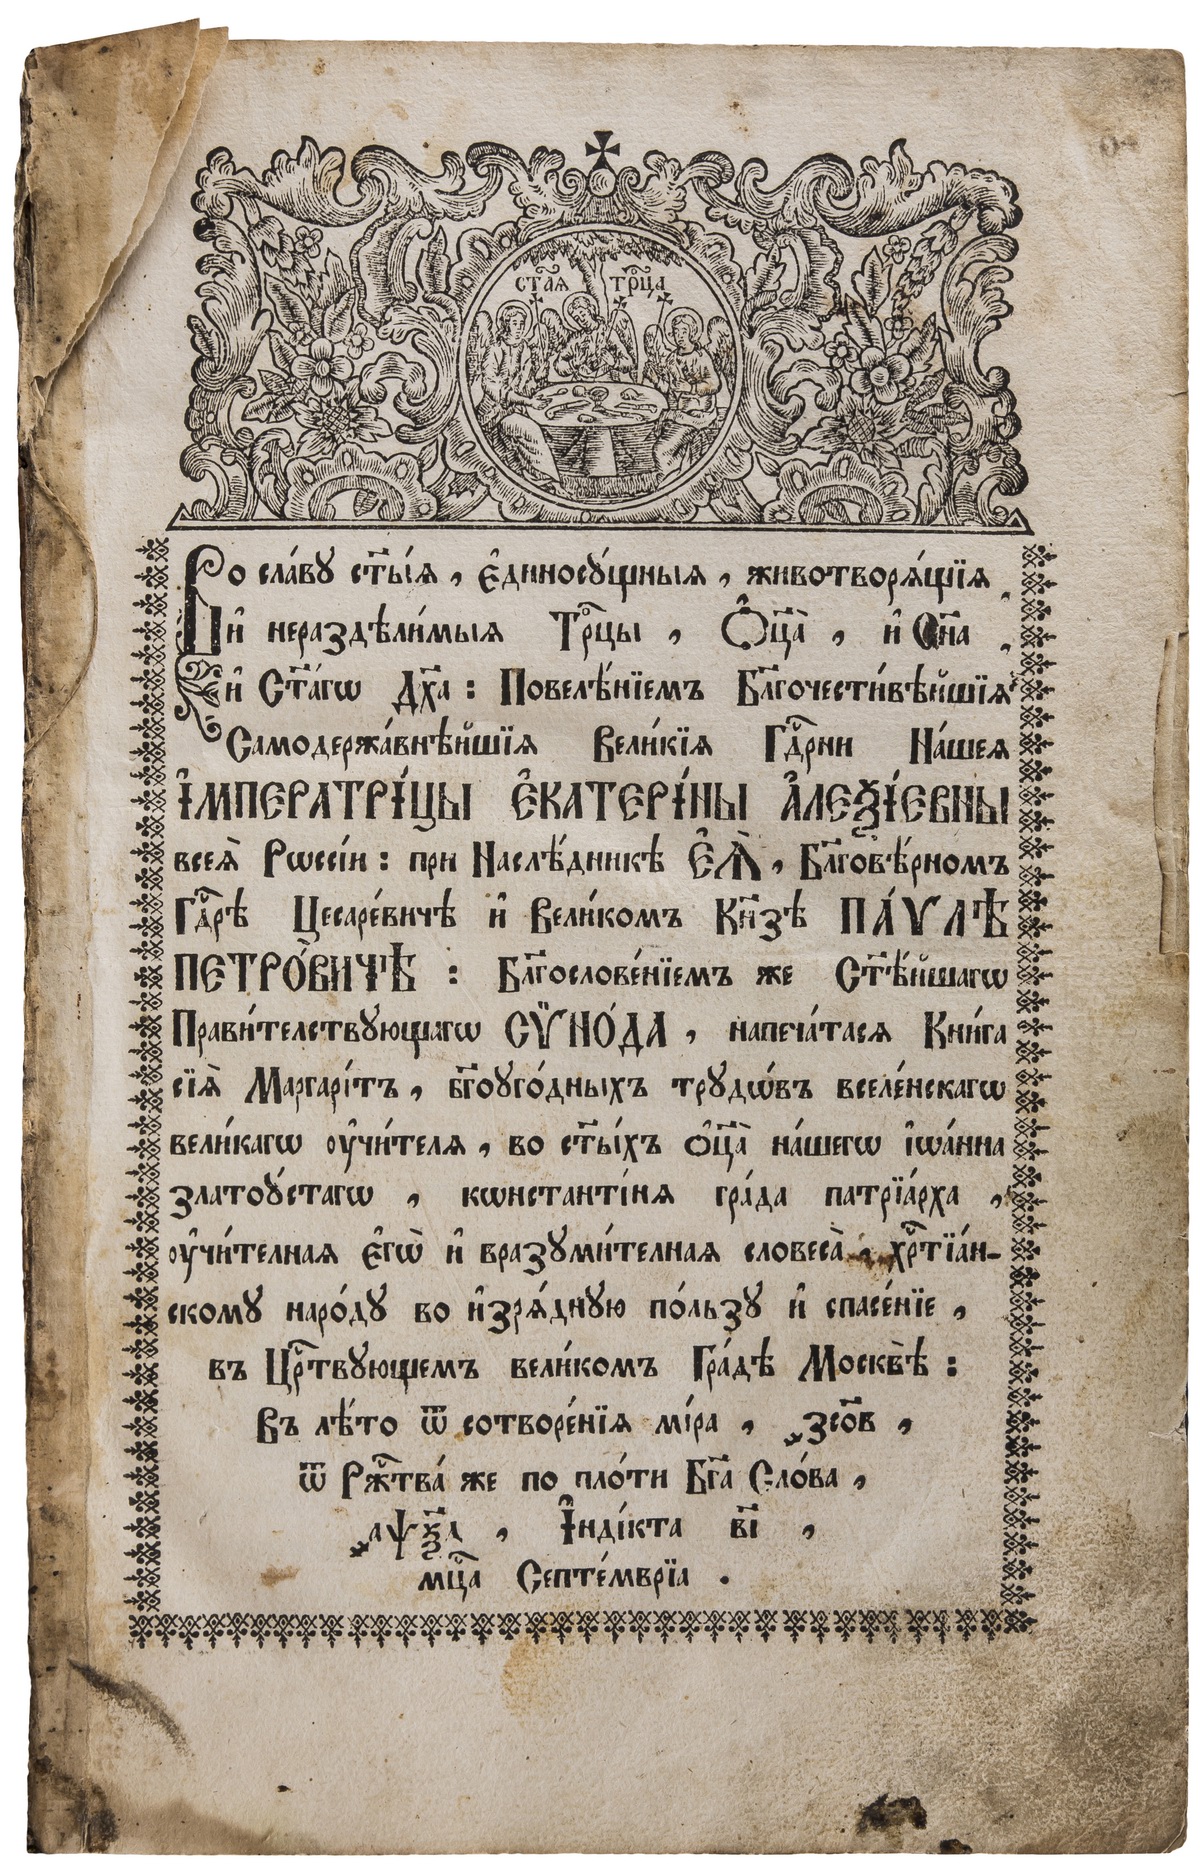 СТ҃АЯ ТРЦ҃А
Во сла́вꙋ ст҃ы́ѧ , є҆диносꙋ́щныѧ , животворѧ́щїѧ ,
и҆ нераздѣли́мыѧ Трⷪ҇цы , Ѻ҆ц҃а̀ , и҆ Сн҃а ,
и҆ Ст҃а́гѡ Дх҃а : Повелѣ́нїемъ Бл҃гочести́вѣйшїѧ
Самодержа́внѣйшїѧ Вели́кїѧ Гдⷭ҇рни На́шеѧ
І҆МПЕРАТРІ́ЦЫ Є҆КАТЕРІ́НЫ А҆ЛЕѮІ́ЕВНЫ
всеѧ̀ Рѡссі́и : при Наслѣ́дникѣ Є҆Ѧ̀ , Бл҃говѣ́рномъ
Гдⷭ҇рѣ Цесаре́вичѣ и҆ Вели́комъ Кн҃зѣ ПА́ѴЛѢ
ПЕТРО́ВИЧѢ : Бл҃гослове́нїемъ же Ст҃ѣ́йшагѡ
Прави́телствꙋющагѡ СѴНО́ДА , напеча́тасѧ Кни́га
сїѧ̀ Маргарі́тъ , бг҃оꙋго́дныхъ трꙋдѡ́въ вселе́нскагѡ
вели́кагѡ ᲂу҆чи́телѧ , во ст҃ы́хъ ѻ҆ц҃а̀ на́шегѡ і҆ѡа́нна
златоꙋ́стагѡ , кѡнстанті́нѧ гра́да патрїа́рха ,
ᲂу҆чи́телнаѧ є҆гѡ̀ и҆ вразꙋми́телнаѧ словеса̀ , хрⷭ҇тїа́н-
скомꙋ наро́дꙋ во и҆зрѧ́днꙋю по́льзꙋ и҆ спасе́нїе ,
въ Црⷭ҇твꙋющемъ вели́комъ Гра́дѣ Москвѣ̀ :
Въ лѣ́то ѿ сотворе́нїѧ мі́ра , ҂зсо҃в ,
ѿ Ржⷭ҇тва́ же по пло́ти Бг҃а Сло́ва ,
҂аѱѯ҃д , І҆нді́кта в҃і ,
мцⷭ҇а Септе́мврїа .